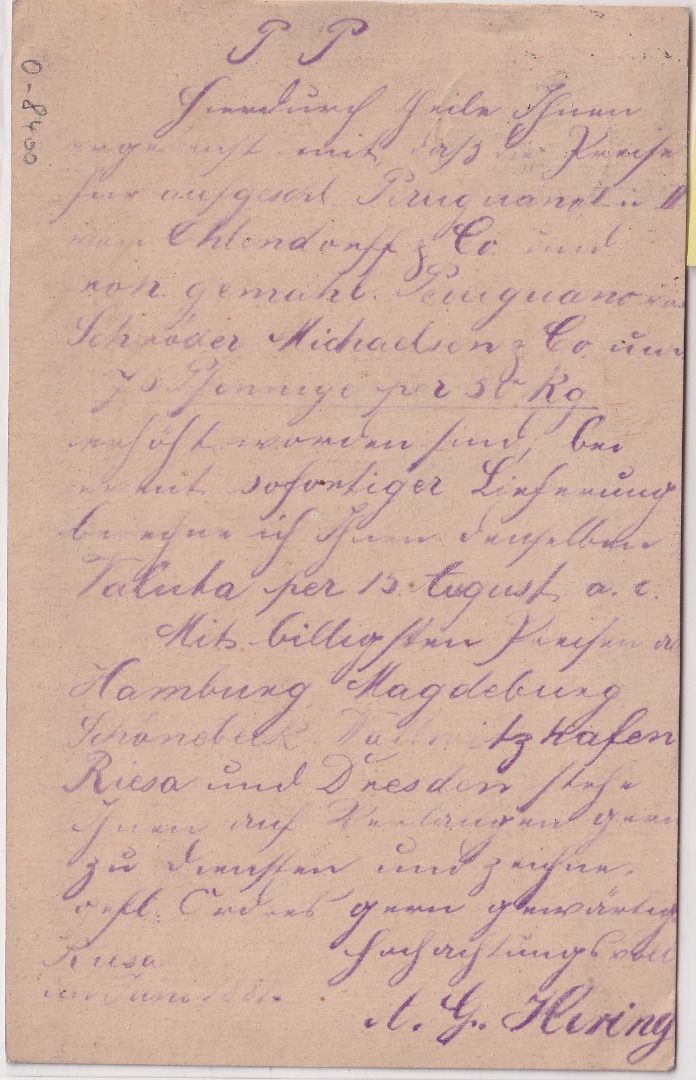 P P
0-8400
Hierdurch theile Ihnen
ergebenst mit, daß die Preise
für aufgeschl. Peruguano I u II
von Ohlendorff & Co. und
roh. gemahl. Peruguano von
Schröder Michaelsen & Co. um
75 Pfennige per 50 Kg
erhöht worden sind, bei
sofortiger Lieferung
berechne ich Ihnen denselben
Valuta per 15. August a. c.
Mit billigsten Preisen ab
Hamburg, Magdeburg
Schönebeck, Wallwitzhafen
Riesa und Dresden stehe
Ihnen auf Verlangen gern
zu Diensten und zeichne,
gefl. Ordres gern gewärtig
Hochachtungsvoll
Riesa
im Juni 1881.
A. G. Hering